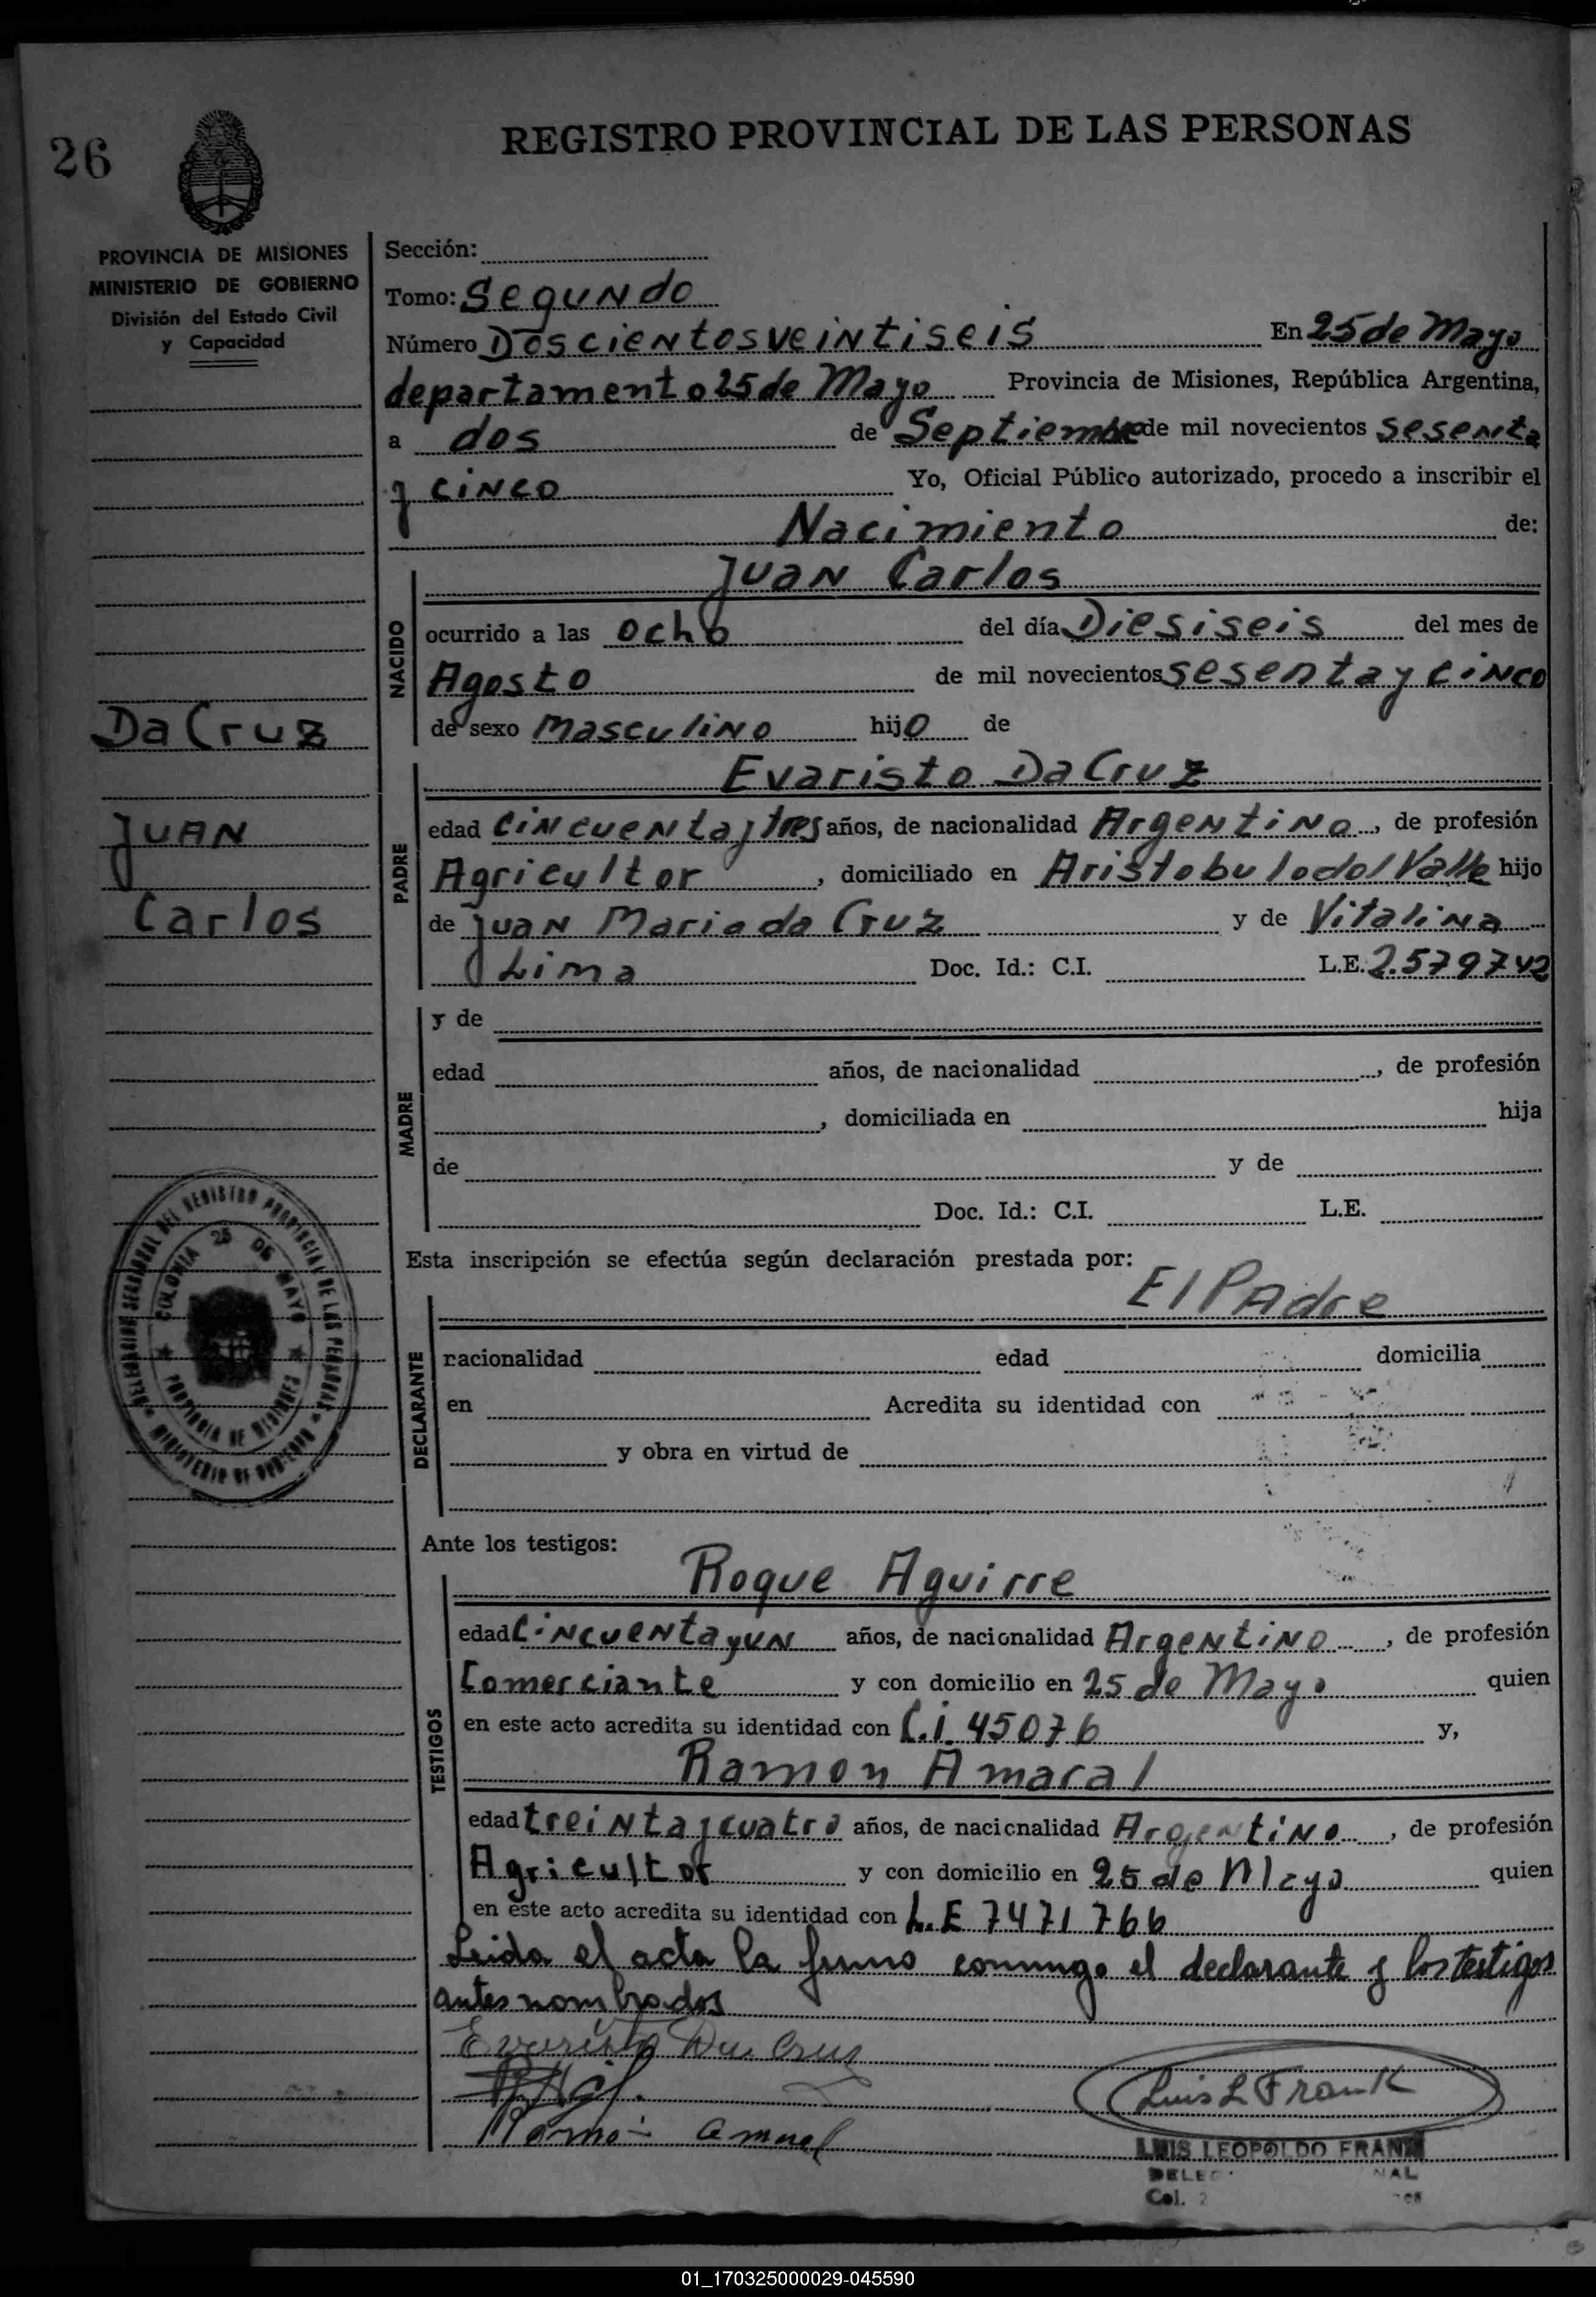 26
REGISTRO PROVINCIAL DE LAS PERSONAS
PROVINCIA DE MISIONES
MINISTERIO DE GOBIERNO
División del Estado Civil
y Capacidad
Sección:
Tomo: Segundo
Número Doscientos veintiseis En 25 de Mayo
departamento 25 de Mayo Provincia de Misiones, República Argentina,
a dos de Septiembre de mil novecientos sesenta
y cinco Yo, Oficial Público autorizado, procedo a inscribir el
Nacimiento de:
NACIDO
Juan Carlos
ocurrido a las ocho del día Diesiseis del mes de
Agosto de mil novecientos sesenta y cinco
de sexo masculino hijo de
Da Cruz
Juan
Carlos
PADRE
Evaristo Da Cruz
edad cincuenta y tres años, de nacionalidad Argentino, de profesión
Agricultor, domiciliado en Aristobulo del Valle hijo
de Juan Maria da Cruz y de Vitalina
Lima Doc. Id.: C.I. L.E. 2.579742
MADRE
y de
edad años, de nacionalidad , de profesión
, domiciliada en hija
de y de
Doc. Id.: C.I. L.E.
Esta inscripción se efectúa según declaración prestada por:
DECLARANTE
El Padre
nacionalidad edad domicilia
en Acredita su identidad con
y obra en virtud de
DELEGACION SECCIONAL DEL REGISTRO PROVINCIAL DE LAS PERSONAS
MINISTERIO DE GOBIERNO
COLONIA 25 DE MAYO
PROVINCIA DE MISIONES
Ante los testigos:
TESTIGOS
Roque Aguirre
edad Cincuenta y un años, de nacionalidad Argentino, de profesión
Comerciante y con domicilio en 25 de Mayo quien
en este acto acredita su identidad con C.i. 45076 y,
Ramon Amaral
edad treinta y cuatro años, de nacionalidad Argentino, de profesión
Agricultor y con domicilio en 25 de Mayo quien
en este acto acredita su identidad con L.E 7471766
Leida el acta la firma conmigo el declarante y los testigos
antes nombrados
Evaristo Da Cruz
Luis L Frank
Ramon Amaral
LUIS LEOPOLDO FRANK
Col.
01_170325000029-045590